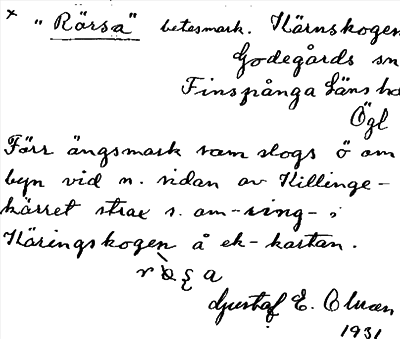 × "Rörsa" betesmark. Kärnskogen
Godegårds sn
Finspånga läns hd
Ögl
Förr ängsmark som slogs ö om
byn vid n. sidan av Killinge-
kärret strax s. om -ring- i
Käringskogen å ek-kartan.
Gustaf E. Olsson
1931